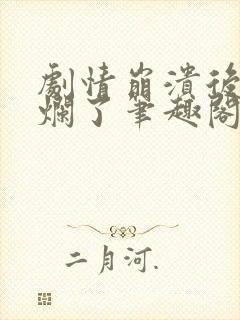 劇情崩潰後
爛了筆趣閣
二月河.